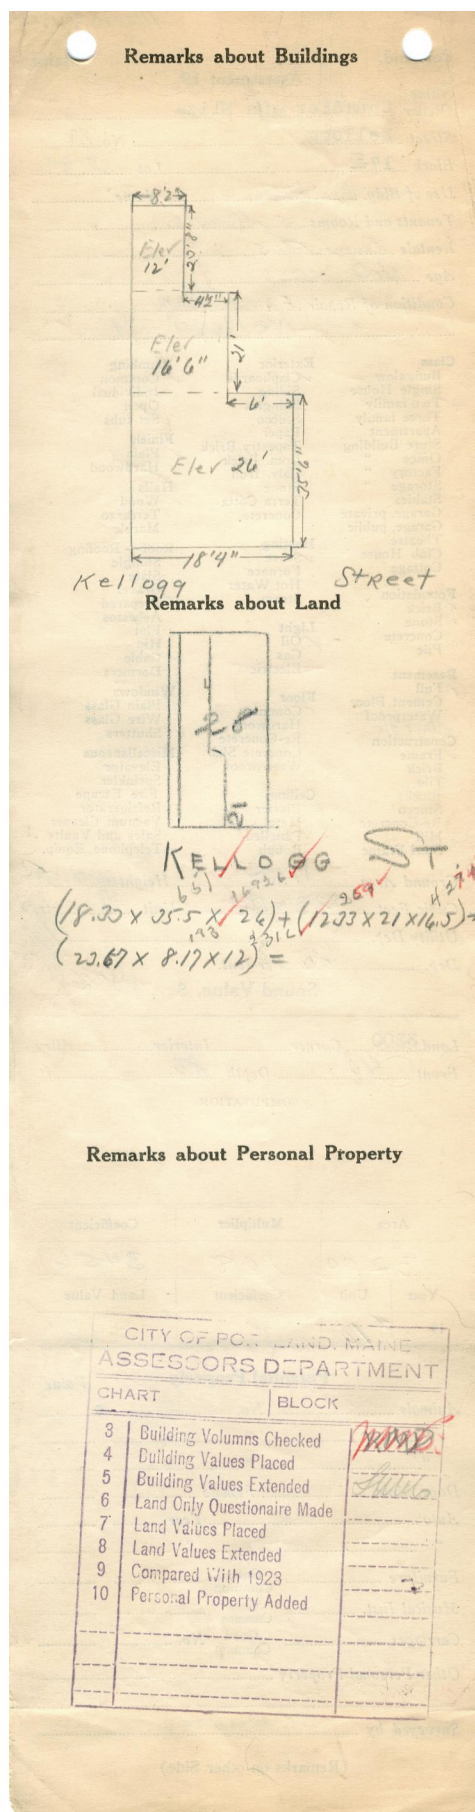 Remarks about Buildings
8'2"
Elev
12'
20'8"
4'2"
Elev
16'6"
21'
6'
Elev 26'
35'6"
18'4"
Kellogg Street
Remarks about Land
28
21
KELLOGG ST
651 16926 259 4274
(18.33 X 35.5 X 26) + (12.33 X 21 X 16.5) =
193 2316
(23.67 X 8.17 X 12) =
Remarks about Personal Property
CITY OF PORTLAND, MAINE
ASSESSORS DEPARTMENT
CHART BLOCK
3 Building Volumns Checked
4 Building Values Placed
5 Building Values Extended
6 Land Only Questionaire Made
7 Land Values Placed
8 Land Values Extended
9 Compared With 1923
10 Personal Property Added
(Remarks on other Side)